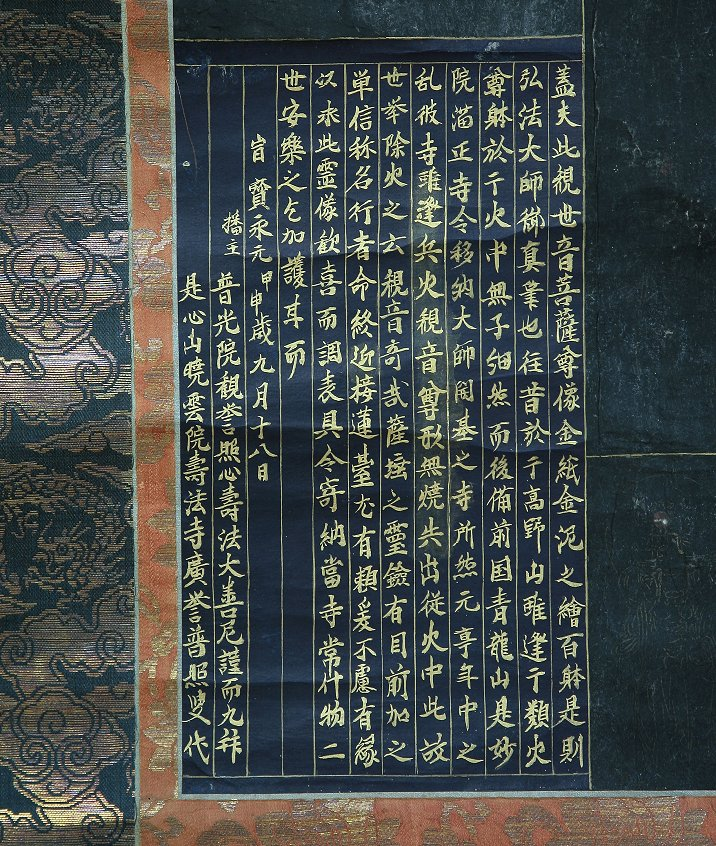 蓋夫此観世音菩薩尊像金紙金泥之繪百躰是則
弘法大師御真筆也往昔於于高野山雖逢于類火
尊躰於于火中無子細然而後備前国青龍山是妙
院滔正寺令移納大師開基之寺所然元亨年中之
乱彼寺雖逢兵火観音尊形無燒失出従火中此故
世挙除火之云観音奇哉薩埵之靈驗有目前加之
単信称名行者命終近接蓮臺尤有頼爰不慮有縁
以求此靈像歓喜而調表具令寄納當寺常什物二
世安樂之乞加護耳而
旹寳永元甲申歳九月十八日
播主
普光院観誉照心壽法大善尼護而九拜
是心山曉雲院壽法寺廣誉普照叟代